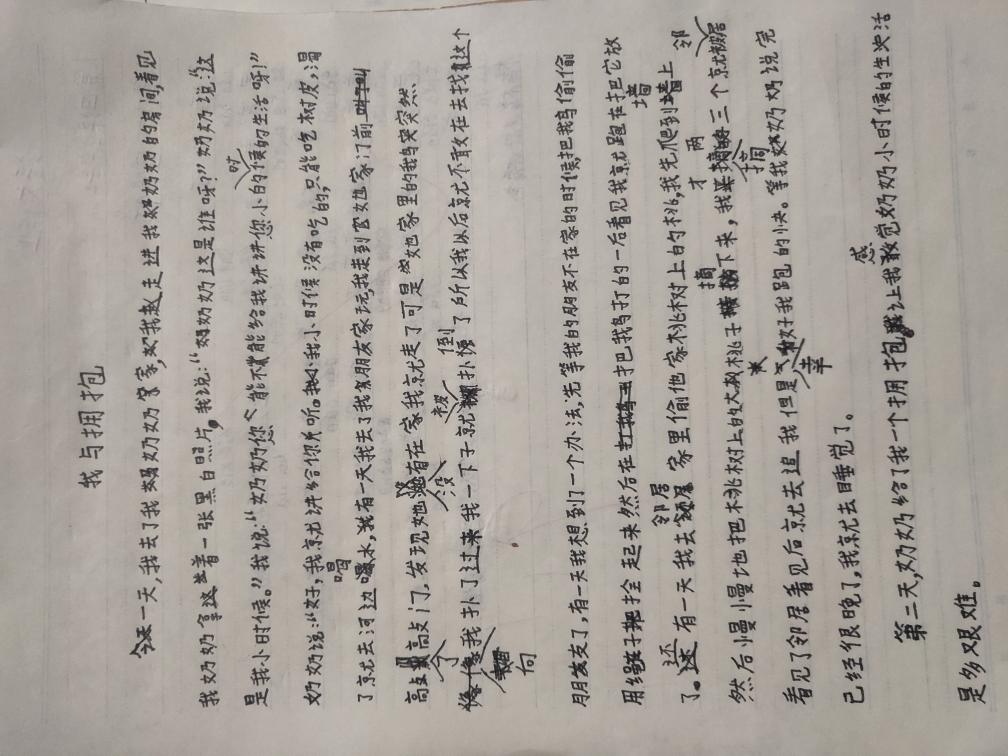 我与拥抱
一天,我去了我奶奶家,我走进我奶奶的房间,看见
我奶奶拿着一张黑白照片。我说:“奶奶这是谁呀?”奶奶说:“这
是我小时候。”我说:“奶奶您能不能给我讲讲您小时候的生活呀!”
奶奶说:“好,我就讲给你听。我小时候没有吃的,只能吃树皮,渴
了就去河边喝水,有一天我去了我朋友家玩,我走到她家门前
高点了门,发现她没有在家我就走了可是她家里的我鸟突然
向我扑了过来我一下子就被扑倒了所以我以后就不敢在去找这个
朋友了,有一天我想到了一个办法,先等我的朋友不在家的时候把我鸟偷偷
用绳子拴起来然后在把我鸟打的一后看见我就跑在把它放
了。还有一天我去邻居家里偷他家桃树上的桃,我先爬到墙上
然后慢慢地把桃树上的桃子摘下来,我才摘两三个就被邻居
看见了邻居看见后就去追我但是幸好我跑的快。等我奶奶说完
已经很晚了,我就去睡觉了。
第二天,奶奶给了我一个拥抱。让我感觉奶奶小时候的生活
是多艰难。